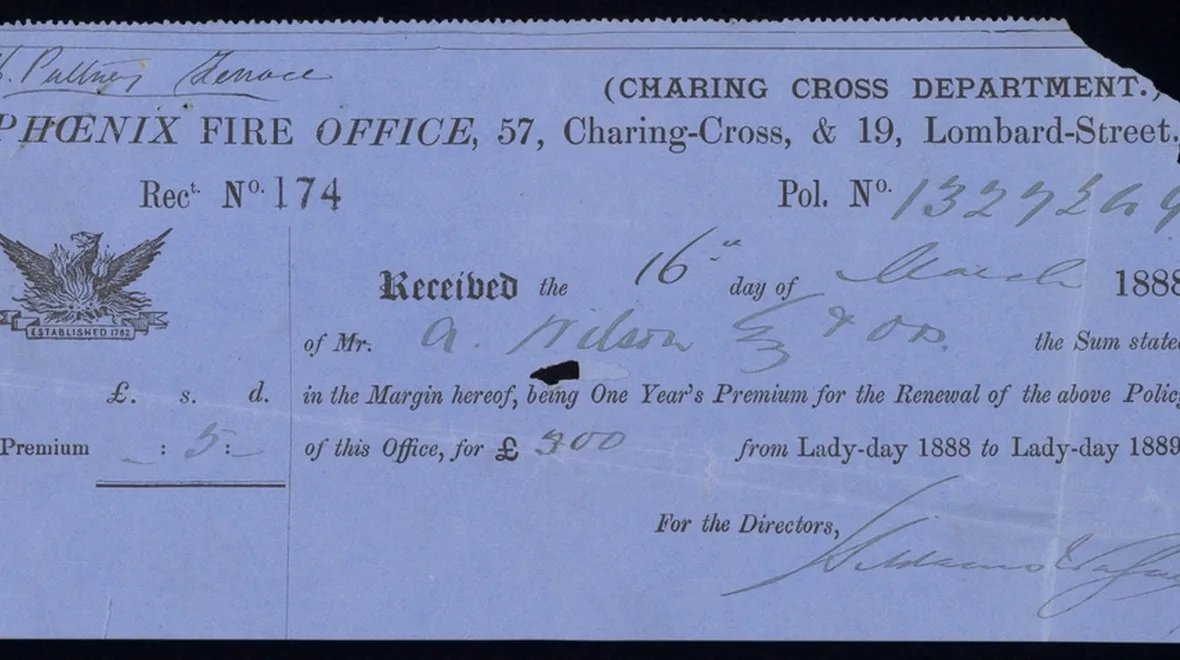 Pultney Terrace
(CHARING CROSS DEPARTMENT.)
PHŒNIX FIRE OFFICE, 57, Charing-Cross, & 19, Lombard-Street.
Rect. No. 174
Pol. No.
ESTABLISHED 1782
Received the 16th day of March 1888
of Mr. A. Wilson Esq & ors. the Sum state
£. s. d.
in the Margin hereof, being One Year's Premium for the Renewal of the above Policy
Premium _ : 5 : _
of this Office, for £ 300 from Lady-day 1888 to Lady-day 1889
For the Directors,